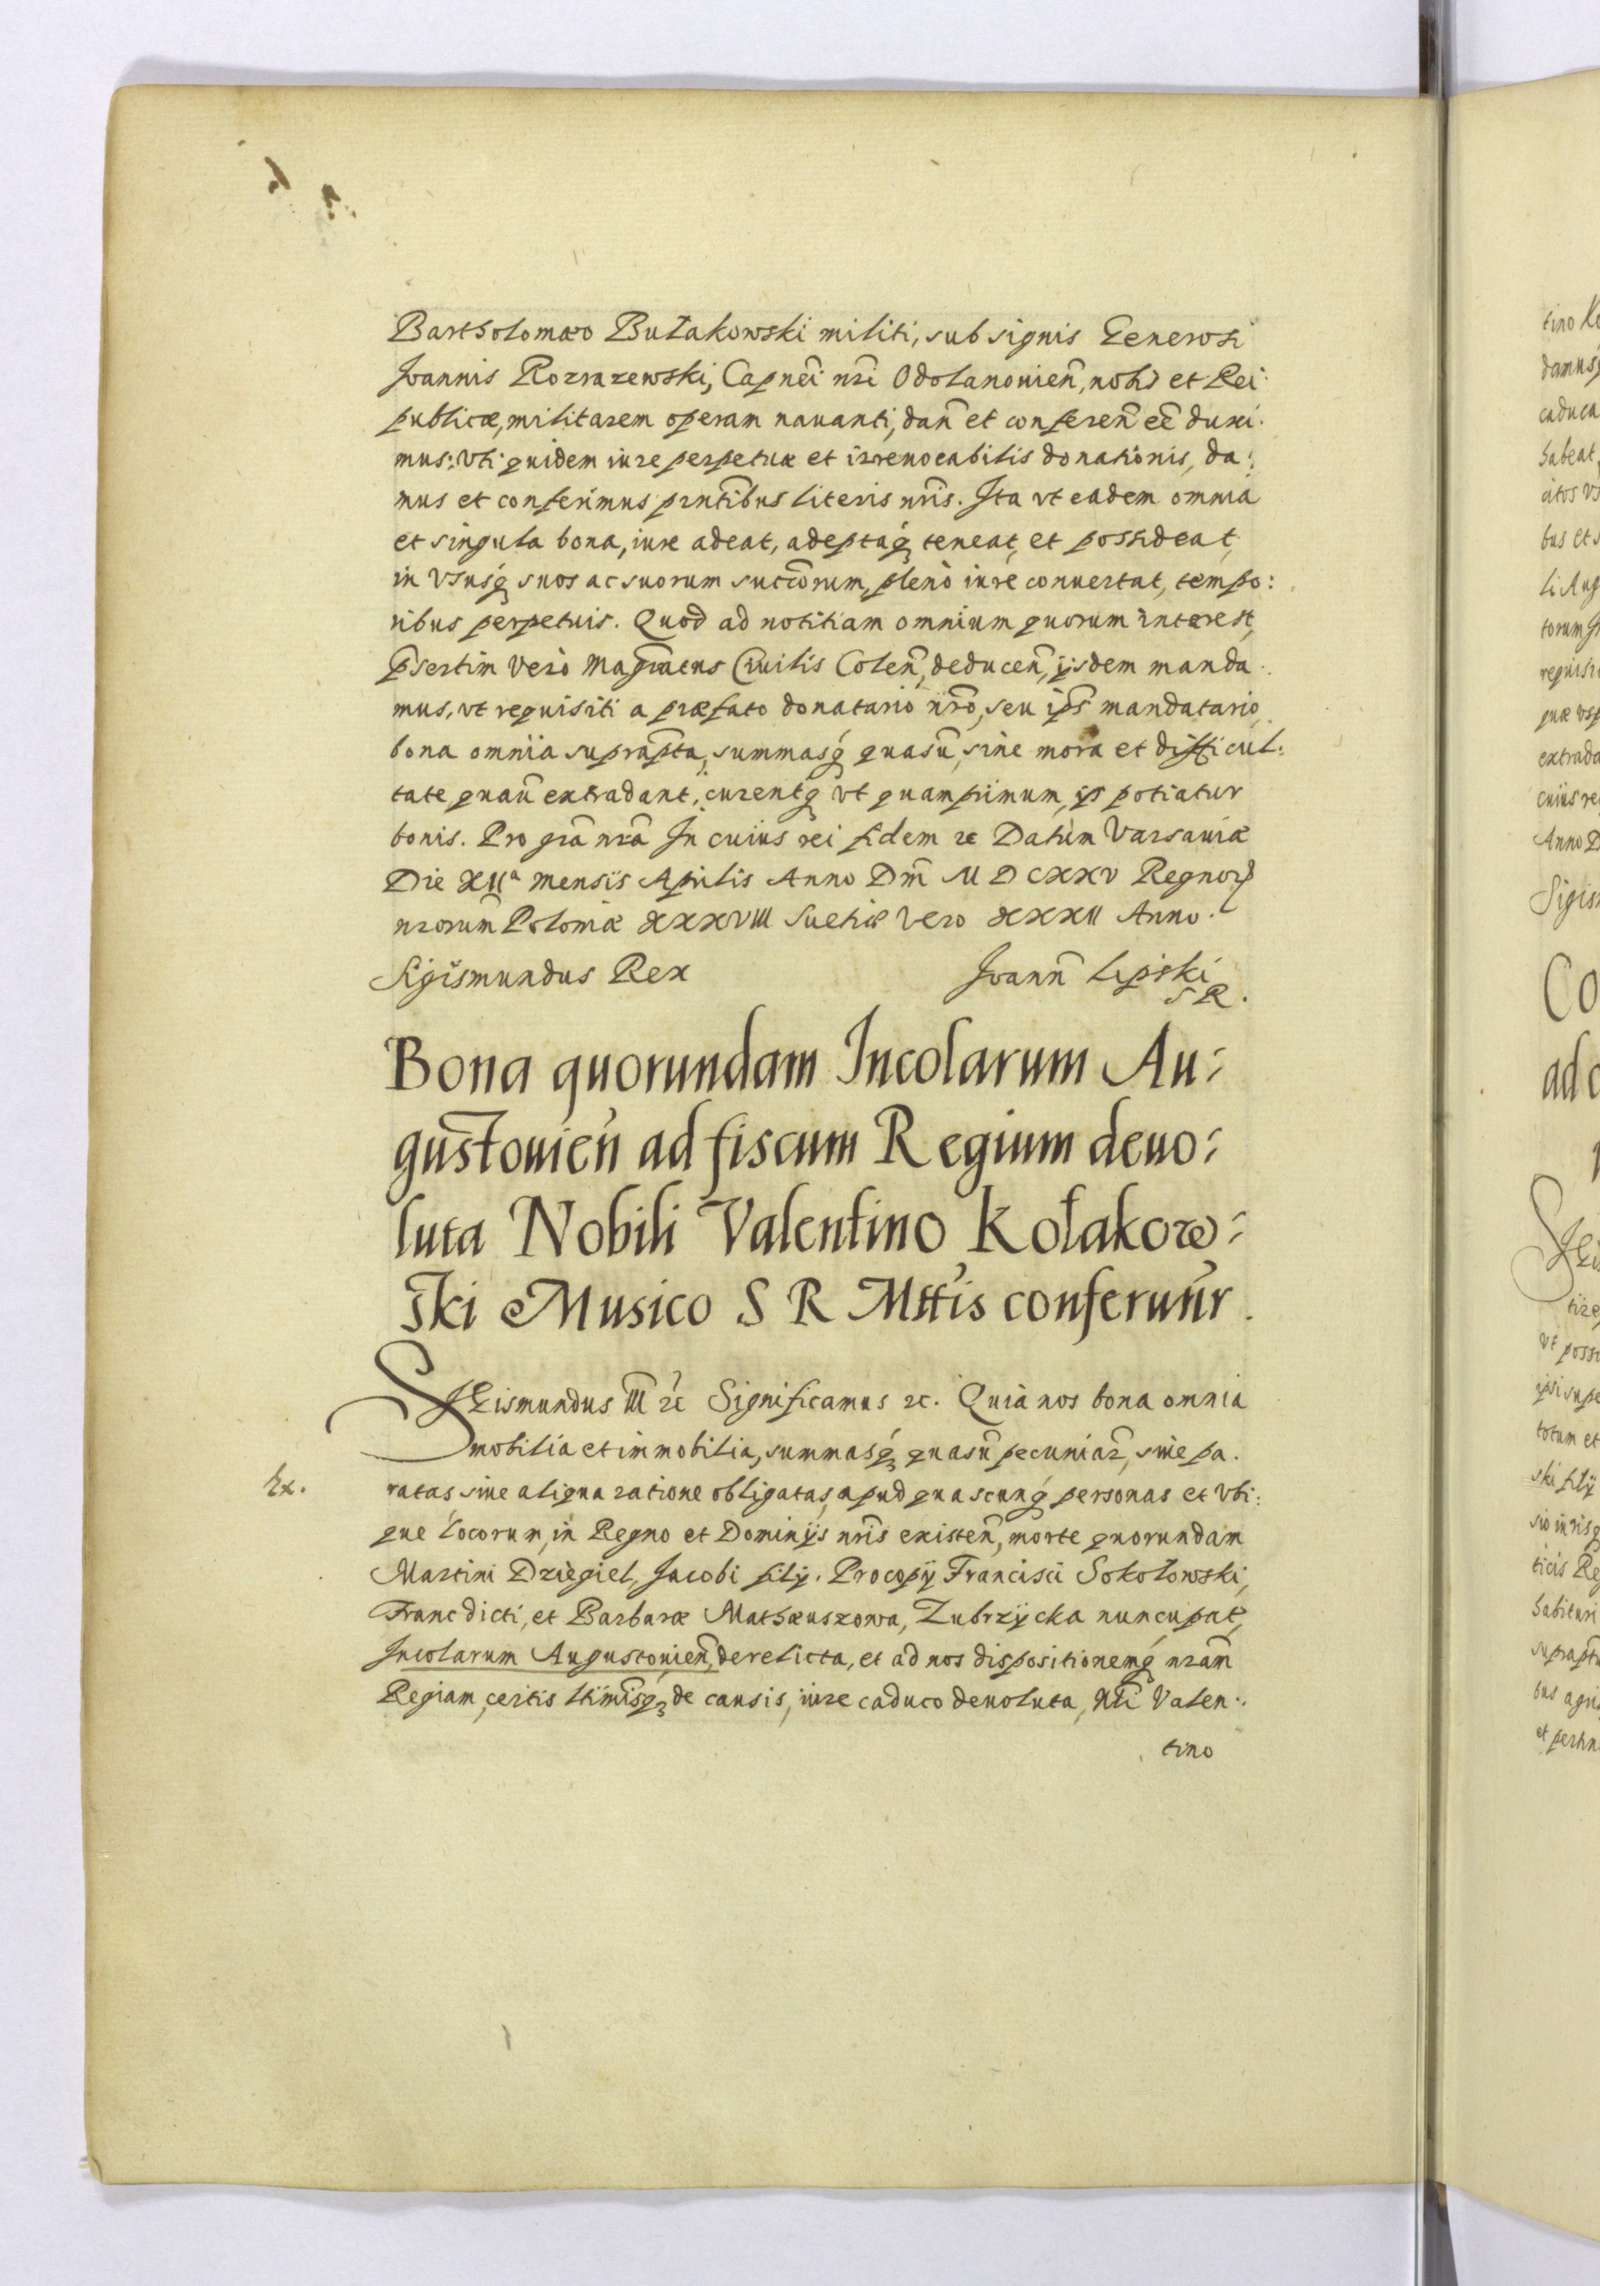 Bartholomæo Bułakowski militi, sub signis Generosi
Joannis Rozrazewski, Capnei nri Odolanouien, nobis et Rei
publicæ, militarem operam nauanti, dan et conferen eē duxi.
mus: vti quidem iure perpetuæ et irreuocabilis donationis, da:
mus et conferimus pntibus literis nris. Ita vt eadem omnia
et singula bona, iure adeat, adeptaq teneat, et possideat,
in vsusq suos ac suorum succorum, pleno iure conuertat, tempo:
ribus perpetuis. Quod ad notitiam omnium quorum interest,
psertim vero Magratus Ciuilis Colen, deducen, ijsdem manda
mus, vt requisiti a præfato donatario nro, seu ips mandatario
bona omnia suprapta, summasq quasu, sine mora et difficul:
tate quau extradant, curentq vt quamprimum, is potiatur
bonis. Pro gra nra In cuius rei fidem &c Datum Varsauiæ
Die XIIa Mensis Aprilis Anno Dm MDCXXV Regnor
nrorum Poloniæ XXXVIII Suetiæ vero XXXII Anno.
Sigismundus Rex Joann Lipski
S R.
Bona quorundam Incolarum Au:
gustouien ad fiscum Regium deuo:
luta Nobili Valentino Kołakow:
ski Musico S R Mttis conferuntr.
SIGismundus III &c Significamus &c. Quia nos bona omnia
mobilia et immobilia, summasq quasu pecuniar, siue pa.
ratas siue aliqua ratione obligatas, apud quascunq personas et vbi:
Ex.
que locorum, in Regno et Dominijs nris existen, morte quorundam
Martini Dziegiel, Jacobi filij. Procopij Francisci Sokołowski,
Franc dicti, et Barbaræ Mathæuszowa, Zubrzycka nuncupat,
Incolarum Augustouien, derelicta, et ad nos dispositionemq nram
Regiam, certis ltimisq de causis, iure caduco deuoluta, Nli Valen:
tino